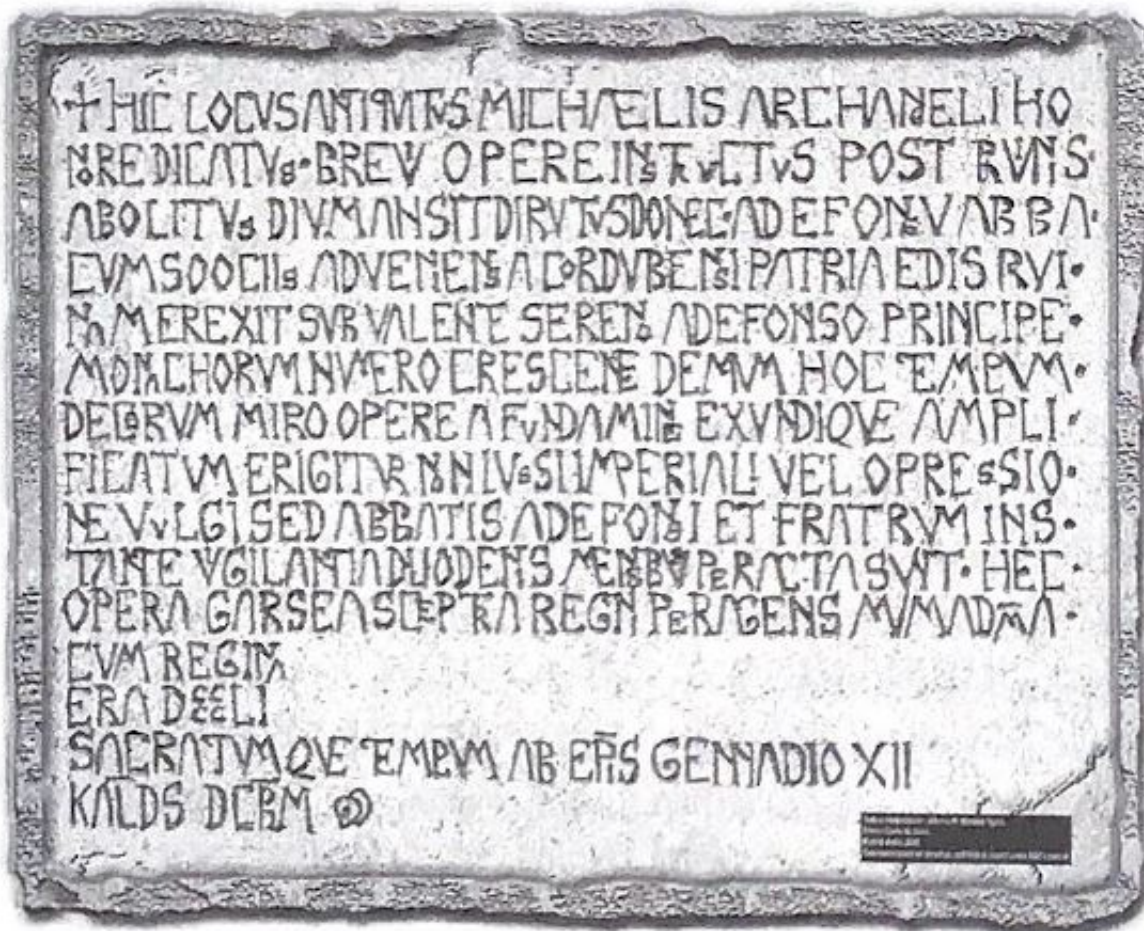 + HIC LOCVS ANTIQVITVS MICHAELIS ARCHANGELI HO
NORE DICATVS · BREVI OPERE INSTRVCTVS POST RVINIS ·
ABOLITVS DIV MANSIT DIRVTVS DONEC · ADEFONSVS ABBA ·
CVM SOOCIIS ADVENIENS A CORDVBENSI PATRIA EDIS RVI ·
NAM EREXIT SVB VALENTE SERENO ADEFONSO PRINCIPE ·
MONACHORVM NVMERO CRESCENTE DEMVM HOC TEMPLVM ·
DECORVM MIRO OPERE A FVNDAMINE EXVNDIQVE AMPLI ·
FICATVM ERIGITVR NON IVSSV IMPERIALI VEL OPRESSIO ·
NE VVLGI SED ABBATIS ADEFONSI ET FRATRVM INS ·
TANTE VIGILANTIA DUODENIS MENSIBVS PERACTA SVNT · HEC ·
OPERA GARSEA SCEPTRA REGNI PERAGENS MVMADOMNA ·
CVM REGINA
ERA DCCCCLI
SACRATVMQVE TEMPLVM AB EPSM GENNADIO XII
KALDS DCBRM